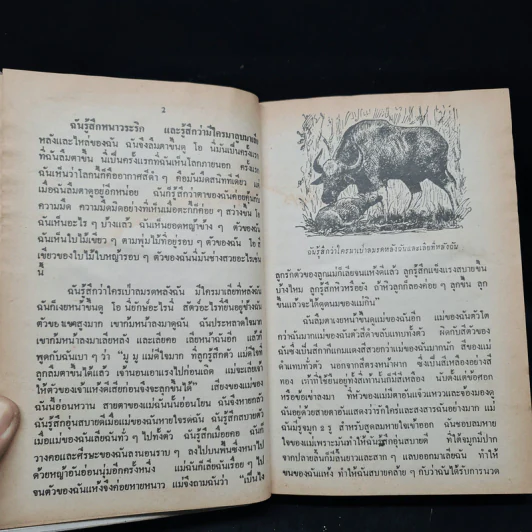 2
ฉันรู้สึกหนาวระริก และรู้สึกว่ามีใครมาลูบมาเลีย
หลังและไหล่ของฉัน ฉันจึงลืมตาขึ้นดู โอ นี่มันเป็นครั้งแรก
ที่ฉันลืมตา นี่เป็นครั้งแรกที่ฉันเห็นโลกภายนอก ครั้งแรก
ฉันเห็นว่าโลกนี้ก็คืออากาศสีดำ ๆ คือมันมืดสนิททีเดียว แต่
เมื่อฉันลืมตาดูอยู่อีกหน่อย ฉันก็รู้สึกว่าตาของฉันค่อยคุ้นกับ
ความมืด ความมืดมิดอย่างที่เห็นเมื่อตะกี้ก็ค่อย ๆ สว่างขึ้น
ฉันเห็นอะไร ๆ บ้างแล้ว ฉันเห็นยอดหญ้าข้าง ๆ ตัวของฉัน
ฉันเห็นใบไม้เขียว ๆ ตามพุ่มไม้ที่อยู่รอบ ๆ ตัวของฉัน โอ สี
เขียวของใบไม้ใบหญ้ารอบ ๆ ตัวของฉันนี่มันช่างสวยอะไรเช่น
นี้
ฉันรู้สึกว่าใครเป่าลมรดหลังฉัน มีใครมาเลียที่หลังฉัน
ฉันก็เงยหน้าขึ้นดู โอ นี่ยักษ์อะไรนี่ สัตว์อะไรที่ยืนอยู่ข้างฉัน
ตัวของเขาสูงมาก เขาก้มหน้าลงมาดูฉัน ฉันประหลาดใจมาก
เขาก้มหน้าลงมาเลียหลัง และเลียคอ เลียหน้าฉันอีก แล้วก็
พูดกับฉันเบา ๆ ว่า "มู มู แม่ดีใจมาก ที่ลูกรู้สึกตัว แม่ดีใจที่
ลูกลืมตาขึ้นได้แล้ว เจ้านอนเอาแรงไปก่อนเถิด แม่จะเลียเจ้า
ให้ตัวของเจ้าแห้งดีเสียก่อนจึงจะลุกขึ้นได้" เสียงของแม่ของ
ฉันนี่อ่อนหวาน สายตาของแม่ฉันนั้นอ่อนโยน ฉันจึงหายกลัว
ฉันรู้สึกอุ่นสบายตอนที่แม่ของฉันหายใจรดฉัน ฉันรู้สึกสบายตัว
เมื่อแม่ของฉันเลียฉันทั่ว ๆ ไปทั้งตัว ฉันรู้สึกเมื่อยคอ ฉันก็
วางคอและศีรษะของฉันลงนอนราบ ๆ ลงไปบนพื้นซึ่งหนาไป
ด้วยหญ้าอันอ่อนนุ่มอีกครั้งหนึ่ง แม่ฉันก็เลียฉันเรื่อย ๆ ไป
จนตัวของฉันแห้งจึงค่อยหายหนาว แม่จึงถามฉันว่า "เป็นไง
ฉันรู้สึกว่าใครมาเป่าลมรดหลังฉันและเลียที่หลังฉัน
ลูกรักตัวของลูกแม่ก็เลียจนแห้งดีแล้ว ลูกรู้สึกแข็งแรงสบายขึ้น
บ้างไหม ลูกรู้สึกหิวหรือยัง ถ้าหิวลูกก็ลองค่อย ๆ ลุกขึ้น ลุก
ขึ้นแล้วจะได้ดูดนมของแม่กิน"
ฉันลืมตาเงยหน้าขึ้นดูแม่ของฉันอีก แม่ของฉันตัวโต
กว่าฉันมากแม่ของฉันตัวสีดำขลับเทบทั้งตัว ผิดกับสีตัวของ
ฉันซึ่งเป็นสีกากีแกมแดงสีสวยกว่าแม่ของฉันมากนัก สีของแม่
ดำแทบทั่วตัว นอกจากสีตรงหน้าผาก ซึ่งเป็นสีเหลืองอย่างสี
ทอง เท้าที่ใช้ยืนอยู่ทั้งสี่เท้านั้นก็มีสีเหลือง นับตั้งแต่ข้อศอก
หรือข้อเข่าลงมา ที่หัวของแม่มีตาอันแจ๋วแหววและมองมองดู
ฉันอยู่ด้วยสายตาอันแสดงว่ารักใคร่และสงสารฉันอย่างมาก แม่
ฉันมีรูจมูก ๒ รู สำหรับสูดลมหายใจเข้าออก ฉันชอบลมหาย
ใจของแม่เพราะมันทำให้ฉันรู้สึกอุ่นสบายดี ที่ใต้จมูกมีปาก
จากปลายลิ้นก็มีลิ้นยาวและสาก ๆ แลบออกมาเลียฉัน ทำให้
ขนของฉันแห้ง ทำให้ฉันสบายคล้าย ๆ กับว่าฉันได้รับการนวด